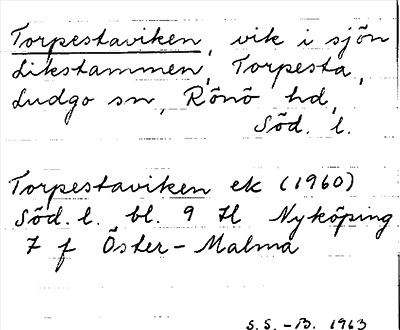 Torpestaviken, vik i sjön
Likstammen, Torpesta,
Ludgo sn, Rönö hd,
Söd. l.
Torpestaviken ek (1960)
Söd. l. bl. 9 H Nyköping
7 f Öster-Malma
S.S. -B. 1963